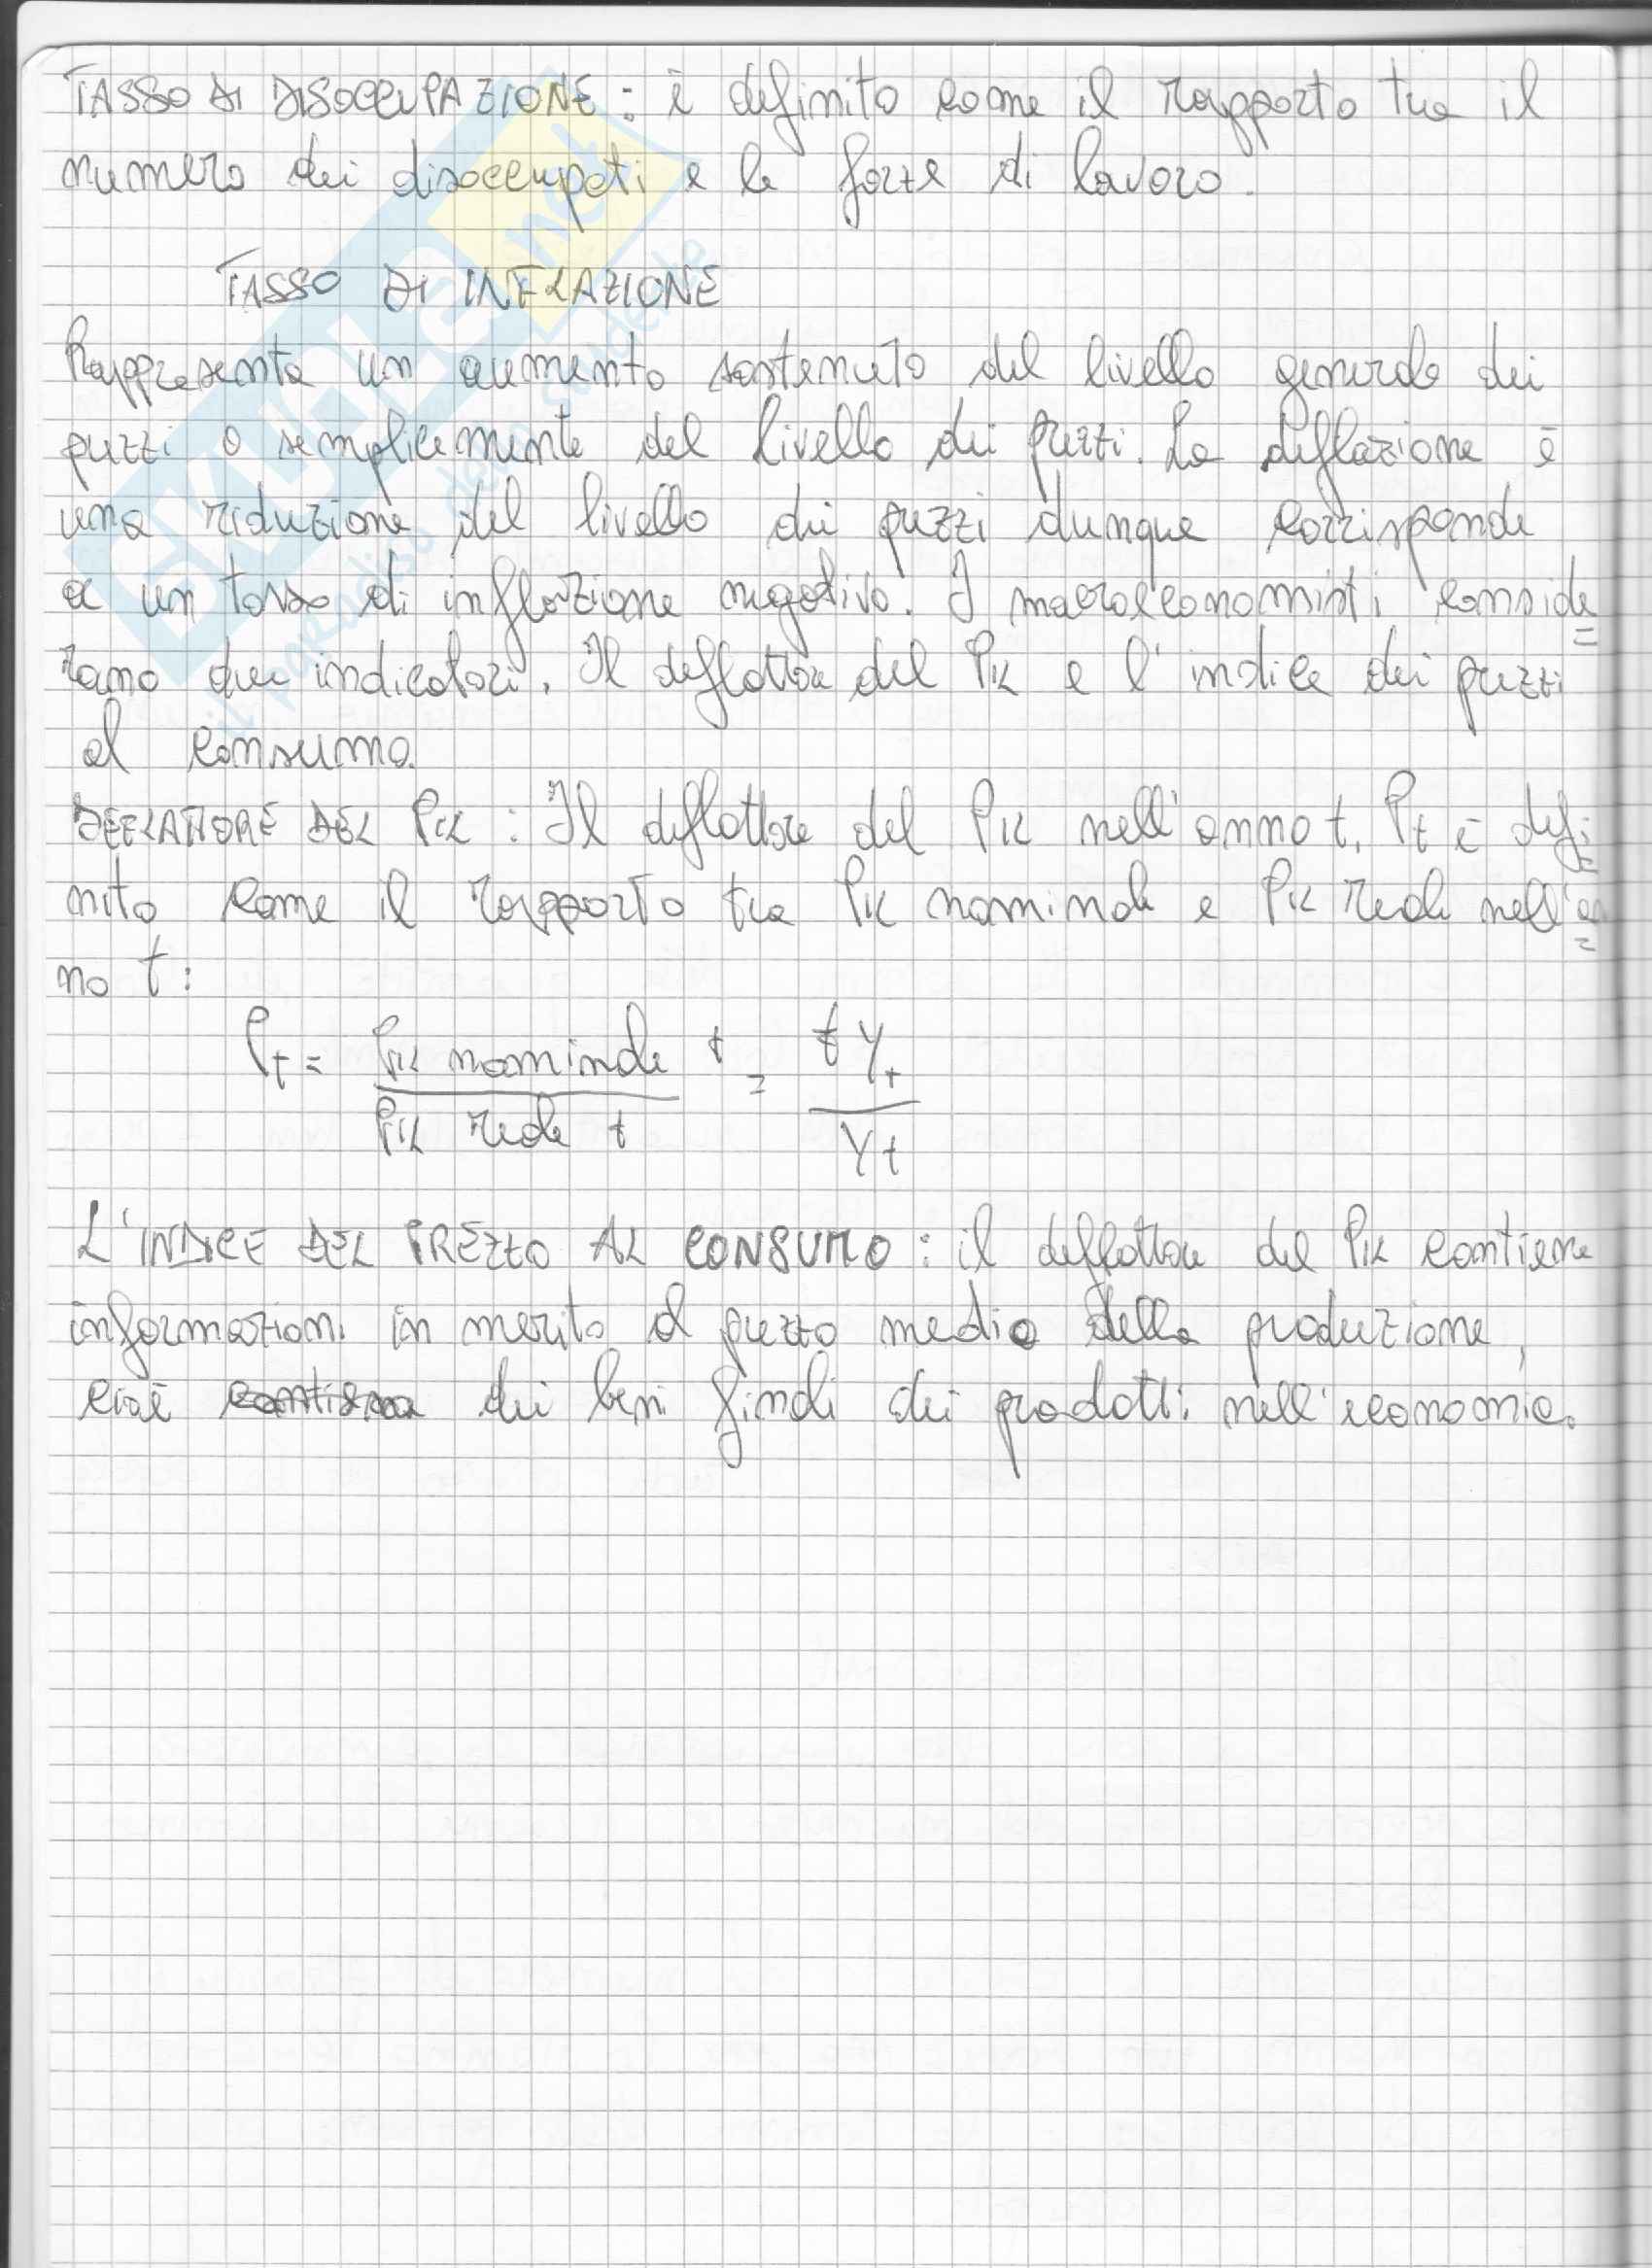 TASSO DI DISOCCUPAZIONE: è definito come il rapporto tra il
numero dei disoccupati e le forze di lavoro.
TASSO DI INFLAZIONE
Rappresenta un aumento sostenuto del livello generale dei
prezzi o semplicemente del livello dei prezzi. La deflazione è
una riduzione del livello dei prezzi dunque corrisponde
a un tasso di inflazione negativo. I macroeconomisti conside
rano due indicatori. Il deflattore del PIL e l'indice dei prezzi
al consumo.
DEFLATTORE DEL PIL: Il deflattore del PIL nell'anno t, Pt è defi
nito come il rapporto tra PIL nominale e PIL reale nell'an
no t:
Pt = PIL nominale t / PIL reale t = € Yt / Yt
L'INDICE DEL PREZZO AL CONSUMO: il deflattore del PIL contiene
informazioni in merito al prezzo medio della produzione,
cioè dei beni finali dei prodotti nell'economia.
SKUOLA.net
il paradiso dello studente